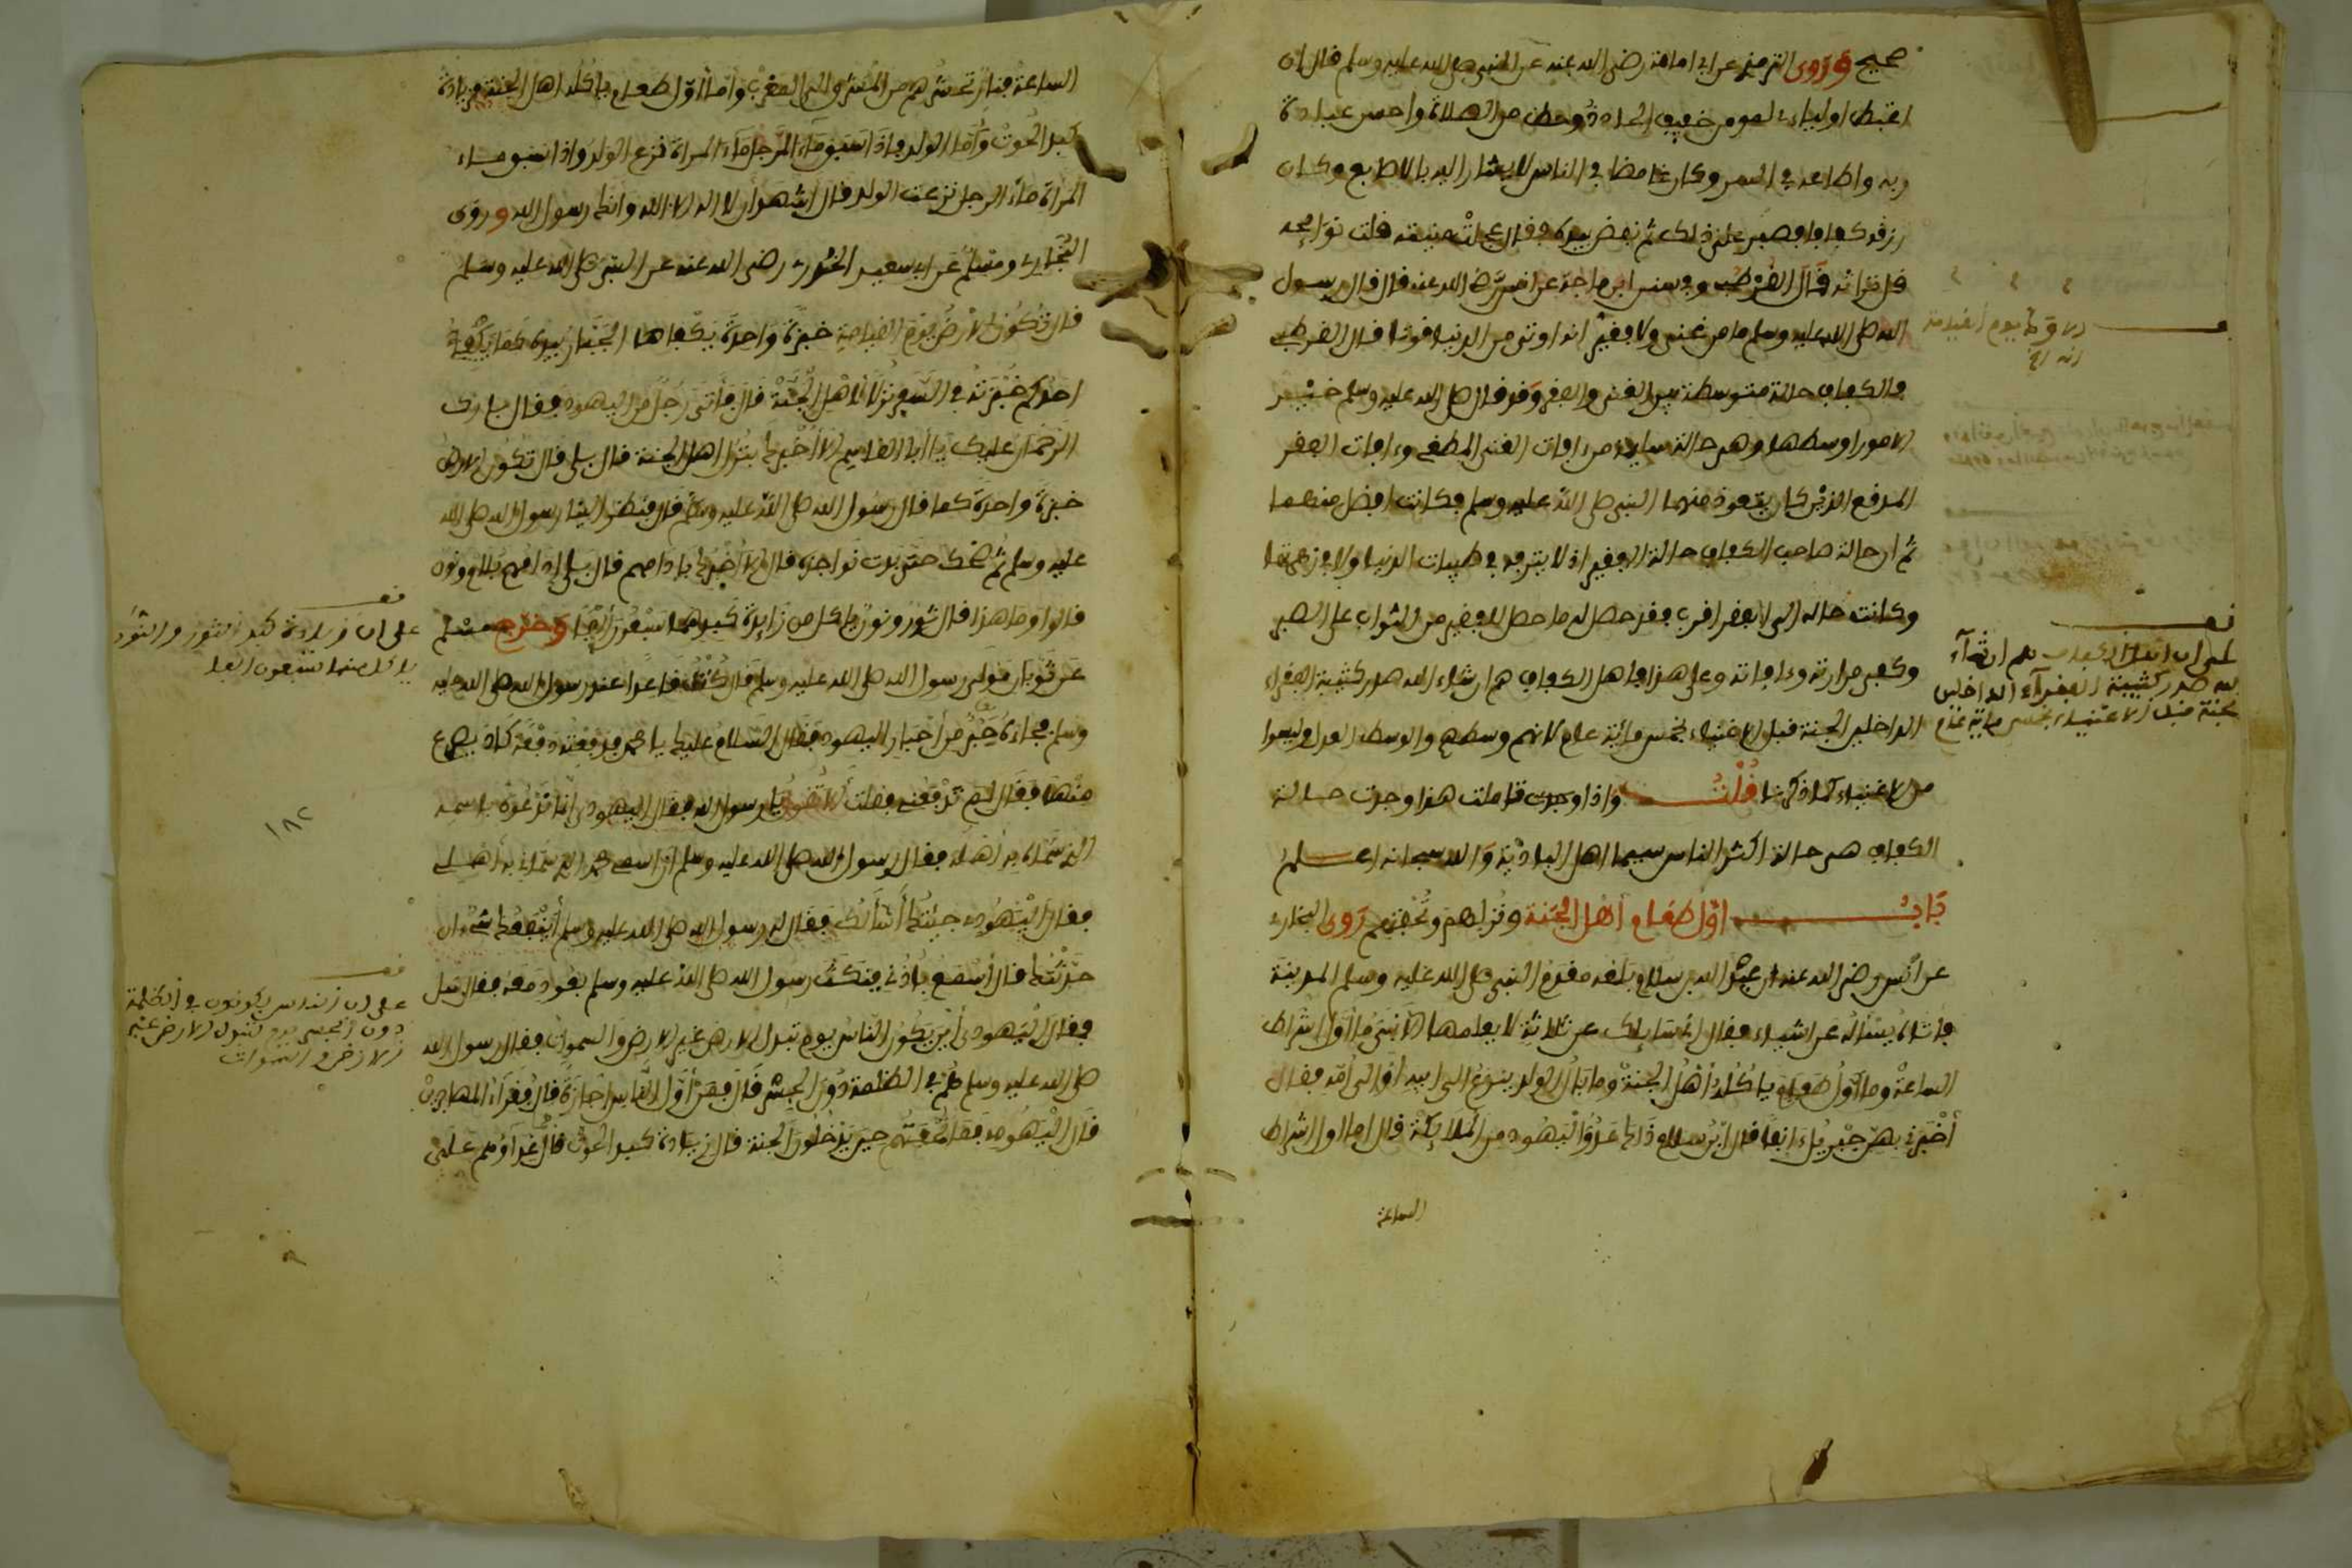 صحيح وروى الترمذي عن ابي امامة رضى الله عنه عن النبي صلى الله عليه وسلم قال ان
اغبط اولياءي لمومن خفيف الحاذ ذو حظ من الصلاة واحسن عبادة
ربه واطاعه في السر وكان غامضا في الناس لا يشار اليه بالاصابع وكان
رزقه كفافا فصبر على ذلك ثم نفض بيده فقال عجلت منيته قلت بواكيه
قل تراثه قال القرطبي وفي سنن ابن ماجة عن انس رضي الله عنه قال قال رسول
الله صلى الله عليه وسلم ما من غني ولا فقير انه اوتي من الدنيا قوتا قال القرطبي
والكفاف حالة متوسطة بين الغنى والفقر وقد قال صلى الله عليه وسلم خير
الامور اوسطها وهي حالة سليمة من ءافات الغنى المطغي وءافات الفقر
المدقع الذين كان يتعوذ منهما النبي صلى الله عليه وسلم فكانت افضل منهما
ثم ان حالة صاحب الكفاف حالة الفقير اذ لا يترفه في طيبات الدنيا ولا في زهرتها
وكانت حاله الى الفقر اقرب فقد حصل له ما حصل للفقير من الثواب على الصبر
وكفي مرارته وءافاته وعلى هذا فاهل الكفاف هم ان شاء الله صدر كتيبة الفقراء
الداخلين الجنة قبل الاغنياء بخمس مائة عام لانهم وسطهم والوسط العدل وليسوا
من الاغنياء كما ذكرنا قلت واذا وجدت تاملت هذا وجدت حالة
الكفاف هي حالة اكثر الناس سيما اهل البادية والله سبحانه اعلم
باب اول طعام اهل الجنة ونزلهم وتحفتهم روى البخاري
عن انس رضى الله عنه ان عبد الله بن سلام بلغه مقدم النبي صلى الله عليه وسلم المدينة
فاتاه يسئاله عن اشياء فقال اني سايلك عن ثلاثة لا يعلمها الا نبي ما اول اشراط
الساعة وما اول طعام ياكله اهل الجنة وما بال الولد ينزع الى ابيه او الى امه فقال
أخبرني بهن جبريل ءانفا قال ابن سلام ذاك عدو اليهود من الملايكة قال اما اول اشراط
الساعة
الساعة فنار تحشرهم من المشرق الى المغرب وأما أول طعام ياكله اهل الجنة فزيادة
كبد الحوت وأما الولد فاذا سبق ماء الرجل ماء المراة نزع الولد واذا سبق ماء
المراة ماء الرجل نزعت الولد قال أشهد أن لا اله الا الله وانك رسول الله وروى
البخاري ومسلم عن ابي سعيد الخدري رضى الله عنه عن النبي صلى الله عليه وسلم
قال تكون الارض يوم القيامة خبزة واحدة يتكفاها الجبار بيده كما يتكفا
احدكم خبزته في السفر نزلا لأهل الجنة قال فأتى رجل من اليهود فقال بارك
الرحمان عليك يا أبا القاسم الا أخبرك بنزل اهل الجنة قال بلى قال تكون الارض
خبزة واحدة كما قال رسول الله صلى الله عليه وسلم قال فنظر الينا رسول الله صلى الله
عليه وسلم ثم ضحك حتى بدت نواجذه قال الا أخبرك بادامهم قال بلى ادامهم بالام ونون
قالوا وما هذا قال ثور ونون ياكل من زايدة كبدهما سبعون ألفا وخرج مسلم
عن ثوبان مولى رسول الله صلى الله عليه وسلم قال كنت قاعدا عند رسول الله صلى الله عليه
وسلم فجاءه حبر من أحبار اليهود فقال السلام عليك يا محمد فدفعته دفعة كاد يصرع
منها فقال لم تدفعني فقلت ألا تقول يا رسول الله فقال اليهودي انا ندعوه باسمه
الذي سماه به أهله فقال رسول الله صلى الله عليه وسلم ان اسمي محمد الذي سماني به أهلي
فقال اليهودي جيتك أسألك فقال له رسول الله صلى الله عليه وسلم أينفعك شيء ان
حدثتك قال أسمع بأذني فنكت رسول الله صلى الله عليه وسلم بعود معه فقال سل
فقال اليهودي أين يكون الناس يوم تبدل الارض غير الارض والسموات فقال رسول الله
صلى الله عليه وسلم هم في الظلمة دون الجسر قال فمن أول الناس اجازة قال فقراء المهاجرين
قال اليهودي فما تحفتهم حين يدخلون الجنة قال زيادة كبد الحوت قال فما غذاوهم على
الا ود يوم القيامة
انه الخ
قف
على ان اهل الكفاف هم ان شاء
الله صدر كتيبة الفقراء الداخلين
الجنة قبل الاغنياء بخمس ماية عام
قف
على ان زيادة كبد الثور والنون
ياكل منها سبعون الفا
١٨٢
قف
على ان الناس يكونون في الظلمة
دون الجسر يوم تبدل الارض غير
الارض والسموات